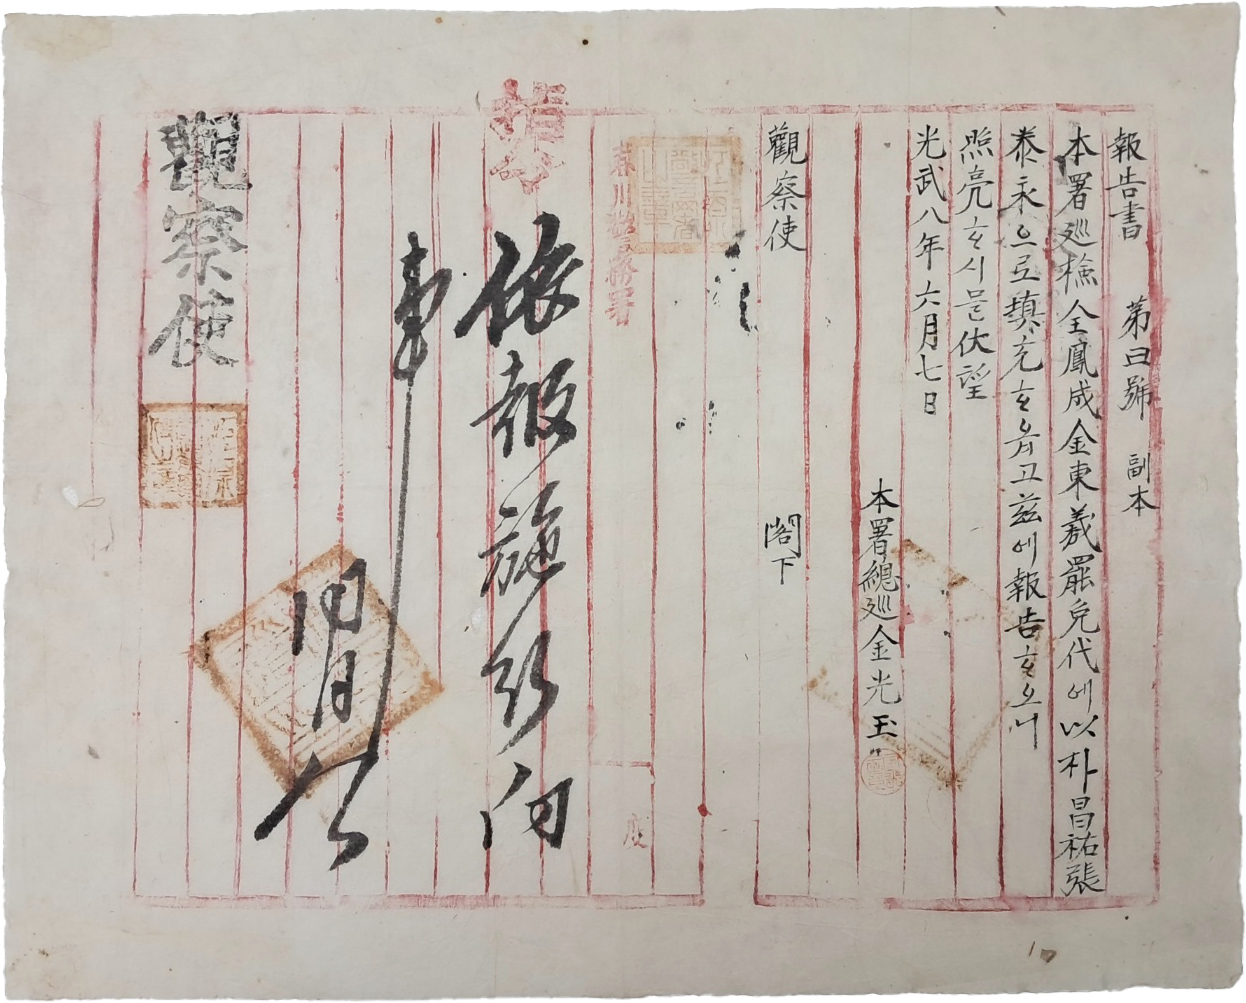 報告書 第四號 副本
本署巡檢全鳳成金東羲罷免代에以朴昌祐張
泰永으로塡充ᄒᆞ옵고玆에報告ᄒᆞ오니
照亮ᄒᆞ시믈伏望
光武八年六月七日
本署總巡金光玉
觀察使 閣下
警務署
度
指令
依報施行向
事
同月
觀察使